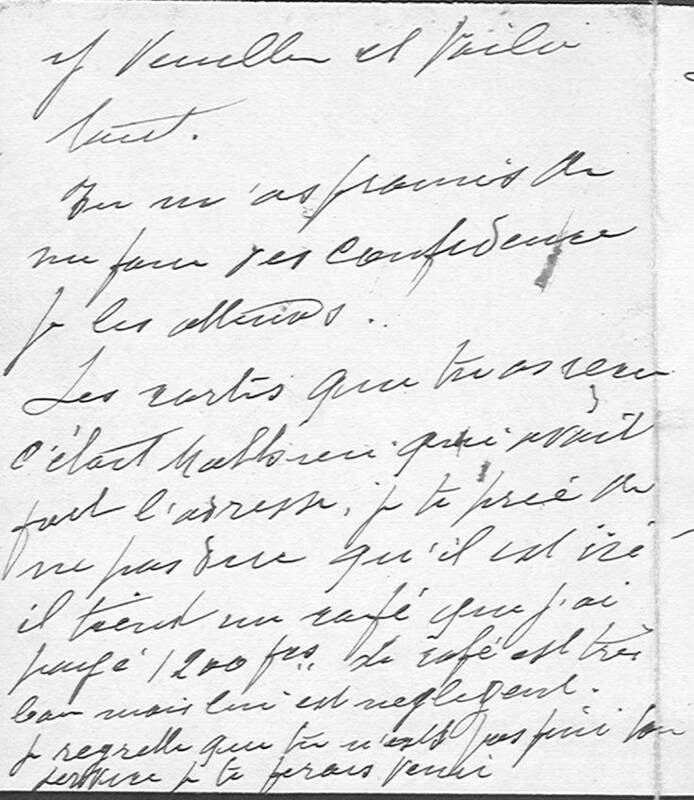 et Voilà
tout.
Tu m'as promis de
me faire des confidence
je les attends.
Les cartes que tu as recu
c'était qui avait
fait l'adresse, je te prie de
ne pas dire qu'il est ici
il tient un café que j'ai
payé 1200 frs Le café est très
bon mais lui est negligent.
je regrette que tu n'est pas fini ton
service je te ferais venir